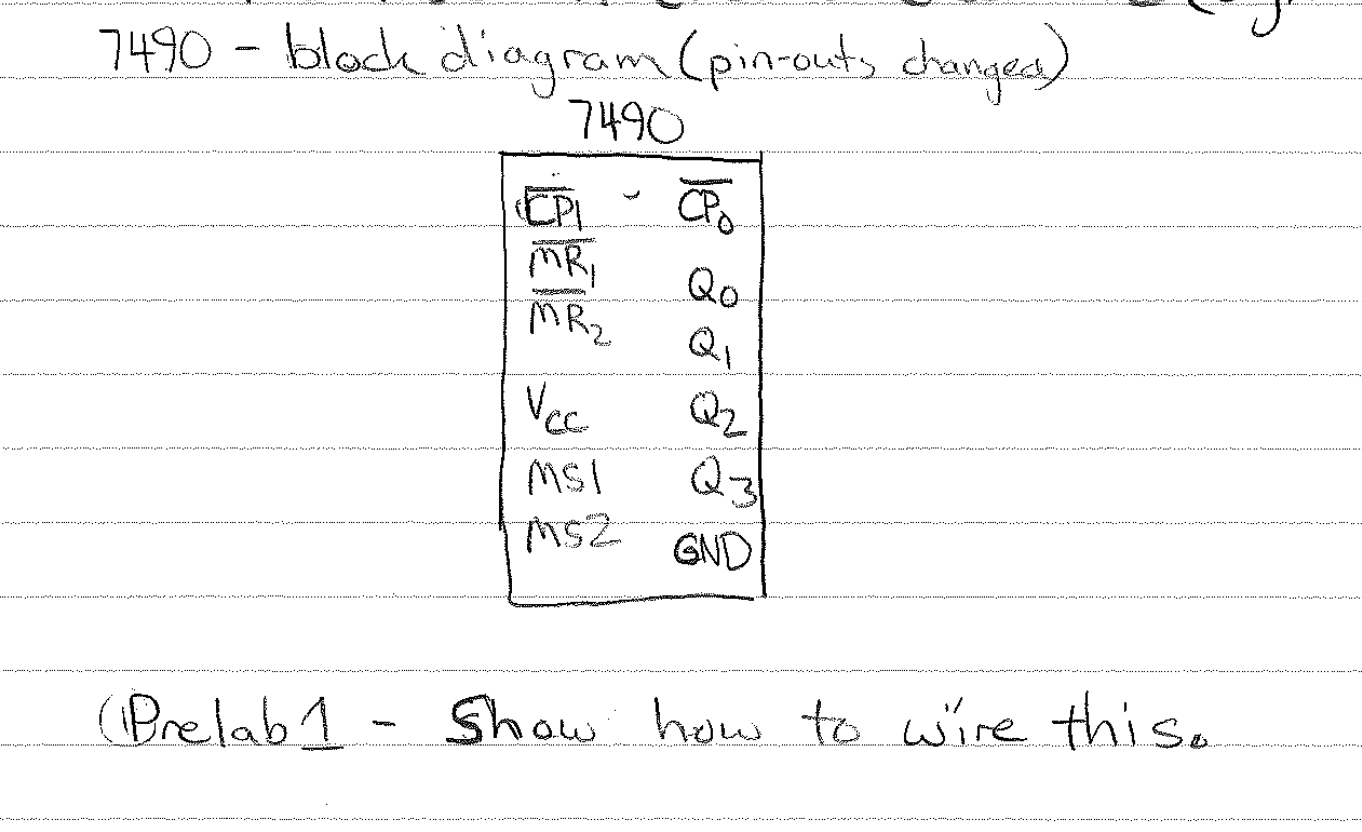 7490 - block diagram (pin-outs changed)
7490
C̅P̅1 C̅P̅₀
M̅R̅₁
Q₀
M̅R̅₂
Q₁
Vcc Q₂
MS1 Q₃
MS2 GND
(Prelab 1 - Show how to wire this.